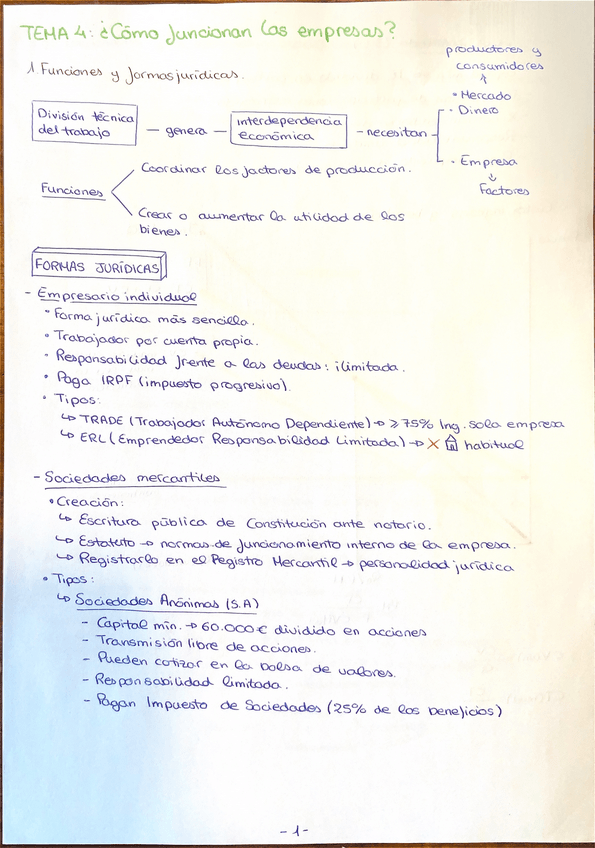 TEMA 4: ¿Cómo funcionan las empresas?
1. Funciones y formas jurídicas.
productores y
consumidores
↑
• Mercado
• Dinero
• Empresa
↓
Factores
División técnica
del trabajo
— genera —
interdependencia
económica
— necesitan
Funciones
Coordinar los factores de producción.
Crear o aumentar la utilidad de los
bienes.
FORMAS JURÍDICAS
- Empresario individual
• Forma jurídica más sencilla.
• Trabajador por cuenta propia.
• Responsabilidad frente a las deudas: ilimitada.
• Paga IRPF (impuesto progresivo).
• Tipos:
↳ TRADE (Trabajador Autónomo Dependiente) → ≥ 75% Ing. sola empresa
↳ ERL (Emprendedor Responsabilidad Limitada) → X habitual
- Sociedades mercantiles
• Creación:
↳ Escritura pública de Constitución ante notario.
↳ Estatuto → normas de funcionamiento interno de la empresa.
↳ Registrarlo en el Registro Mercantil → personalidad jurídica
• Tipos:
↳ Sociedades Anónimas (S.A)
- Capital mín. → 60.000€ dividido en acciones
- Transmisión libre de acciones.
- Pueden cotizar en la bolsa de valores.
- Responsabilidad limitada.
- Pagan Impuesto de Sociedades (25% de los beneficios)
- 1 -